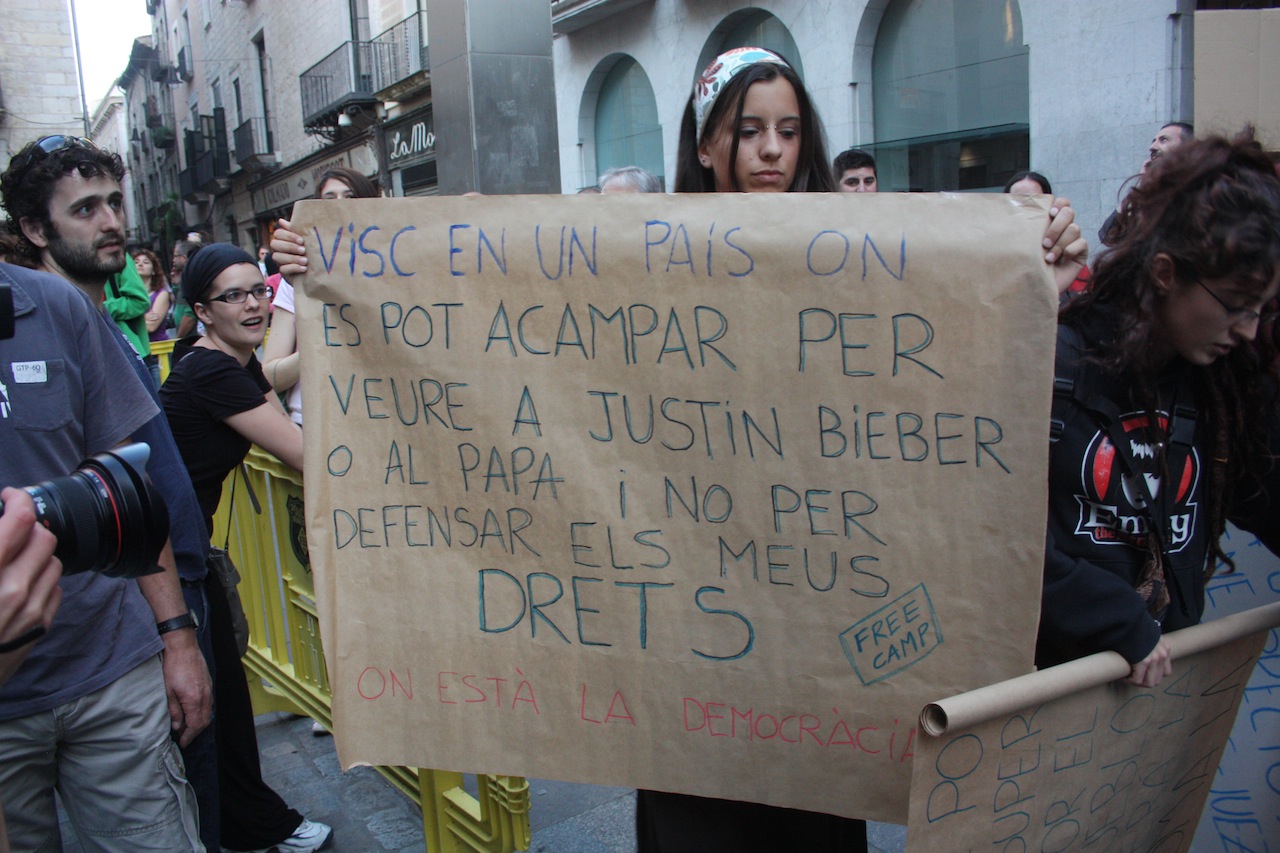 VISC EN UN PAÍS ON
ES POT ACAMPAR PER
VEURE A JUSTIN BIEBER
O AL PAPA i NO PER
DEFENSAR ELS MEUS
DRETS
FREE
CAMP
ON ESTÀ LA DEMOCRÀCIA
La Mo
GTP-60
Emily
the